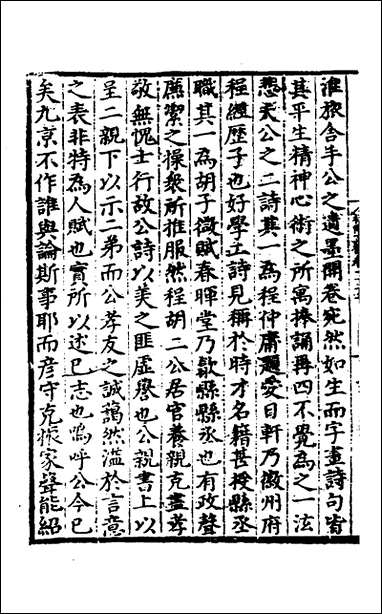 淮旅舍手公之遺墨開卷宛然如生而字畫詩句皆
其平生精神心術之所寓捧誦再四不覺為之一法
公之二詩其一為程仲庸題愛日軒乃徽州府
程經歷子也好學工詩見稱於時才名籍甚授縣丞
職其一為胡子徵賦春暉堂乃歙縣縣丞也有政聲
廉潔之操衆所推服然程胡二公居官養親克盡孝
敬無愧士行故公詩以美之匪虛譽也公親書上以
呈二親下以示二弟而公孝友之誠藹然溢於言意
之表非特為人賦也實所以述已志也嗚呼公今已
矣九京不作誰與論斯事耶而彦守克振家聲能紹